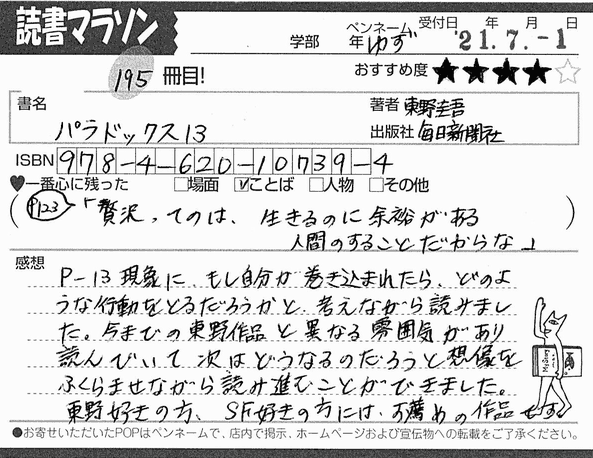 読書マラソン
学部 年 ペンネーム ゆず 受付日 年 月 日 '21.7.-1
195冊目! おすすめ度 ★★★★☆
書名 著者 東野圭吾
パラドックス13 出版社 毎日新聞社
ISBN 978-4-620-10739-4
♥一番心に残った □場面 ☑ことば □人物 □その他
(P123 「贅沢ってのは、生きるのに余裕がある
人間のすることだからな」)
感想
P-13現象に、もし自分が巻き込まれたら、どのよ
うな行動をとるだろうかと、考えながら読みまし
た。今までの東野作品と異なる雰囲気があり
読んでいて次はどうなるのだろうと想像を
ふくらませながら読み進むことができました。
東野好きの方、SF好きの方には、お薦めの作品です。
●お寄せいただいたPOPはペンネームで、店内で掲示、ホームページおよび宣伝物への転載をご了承ください。